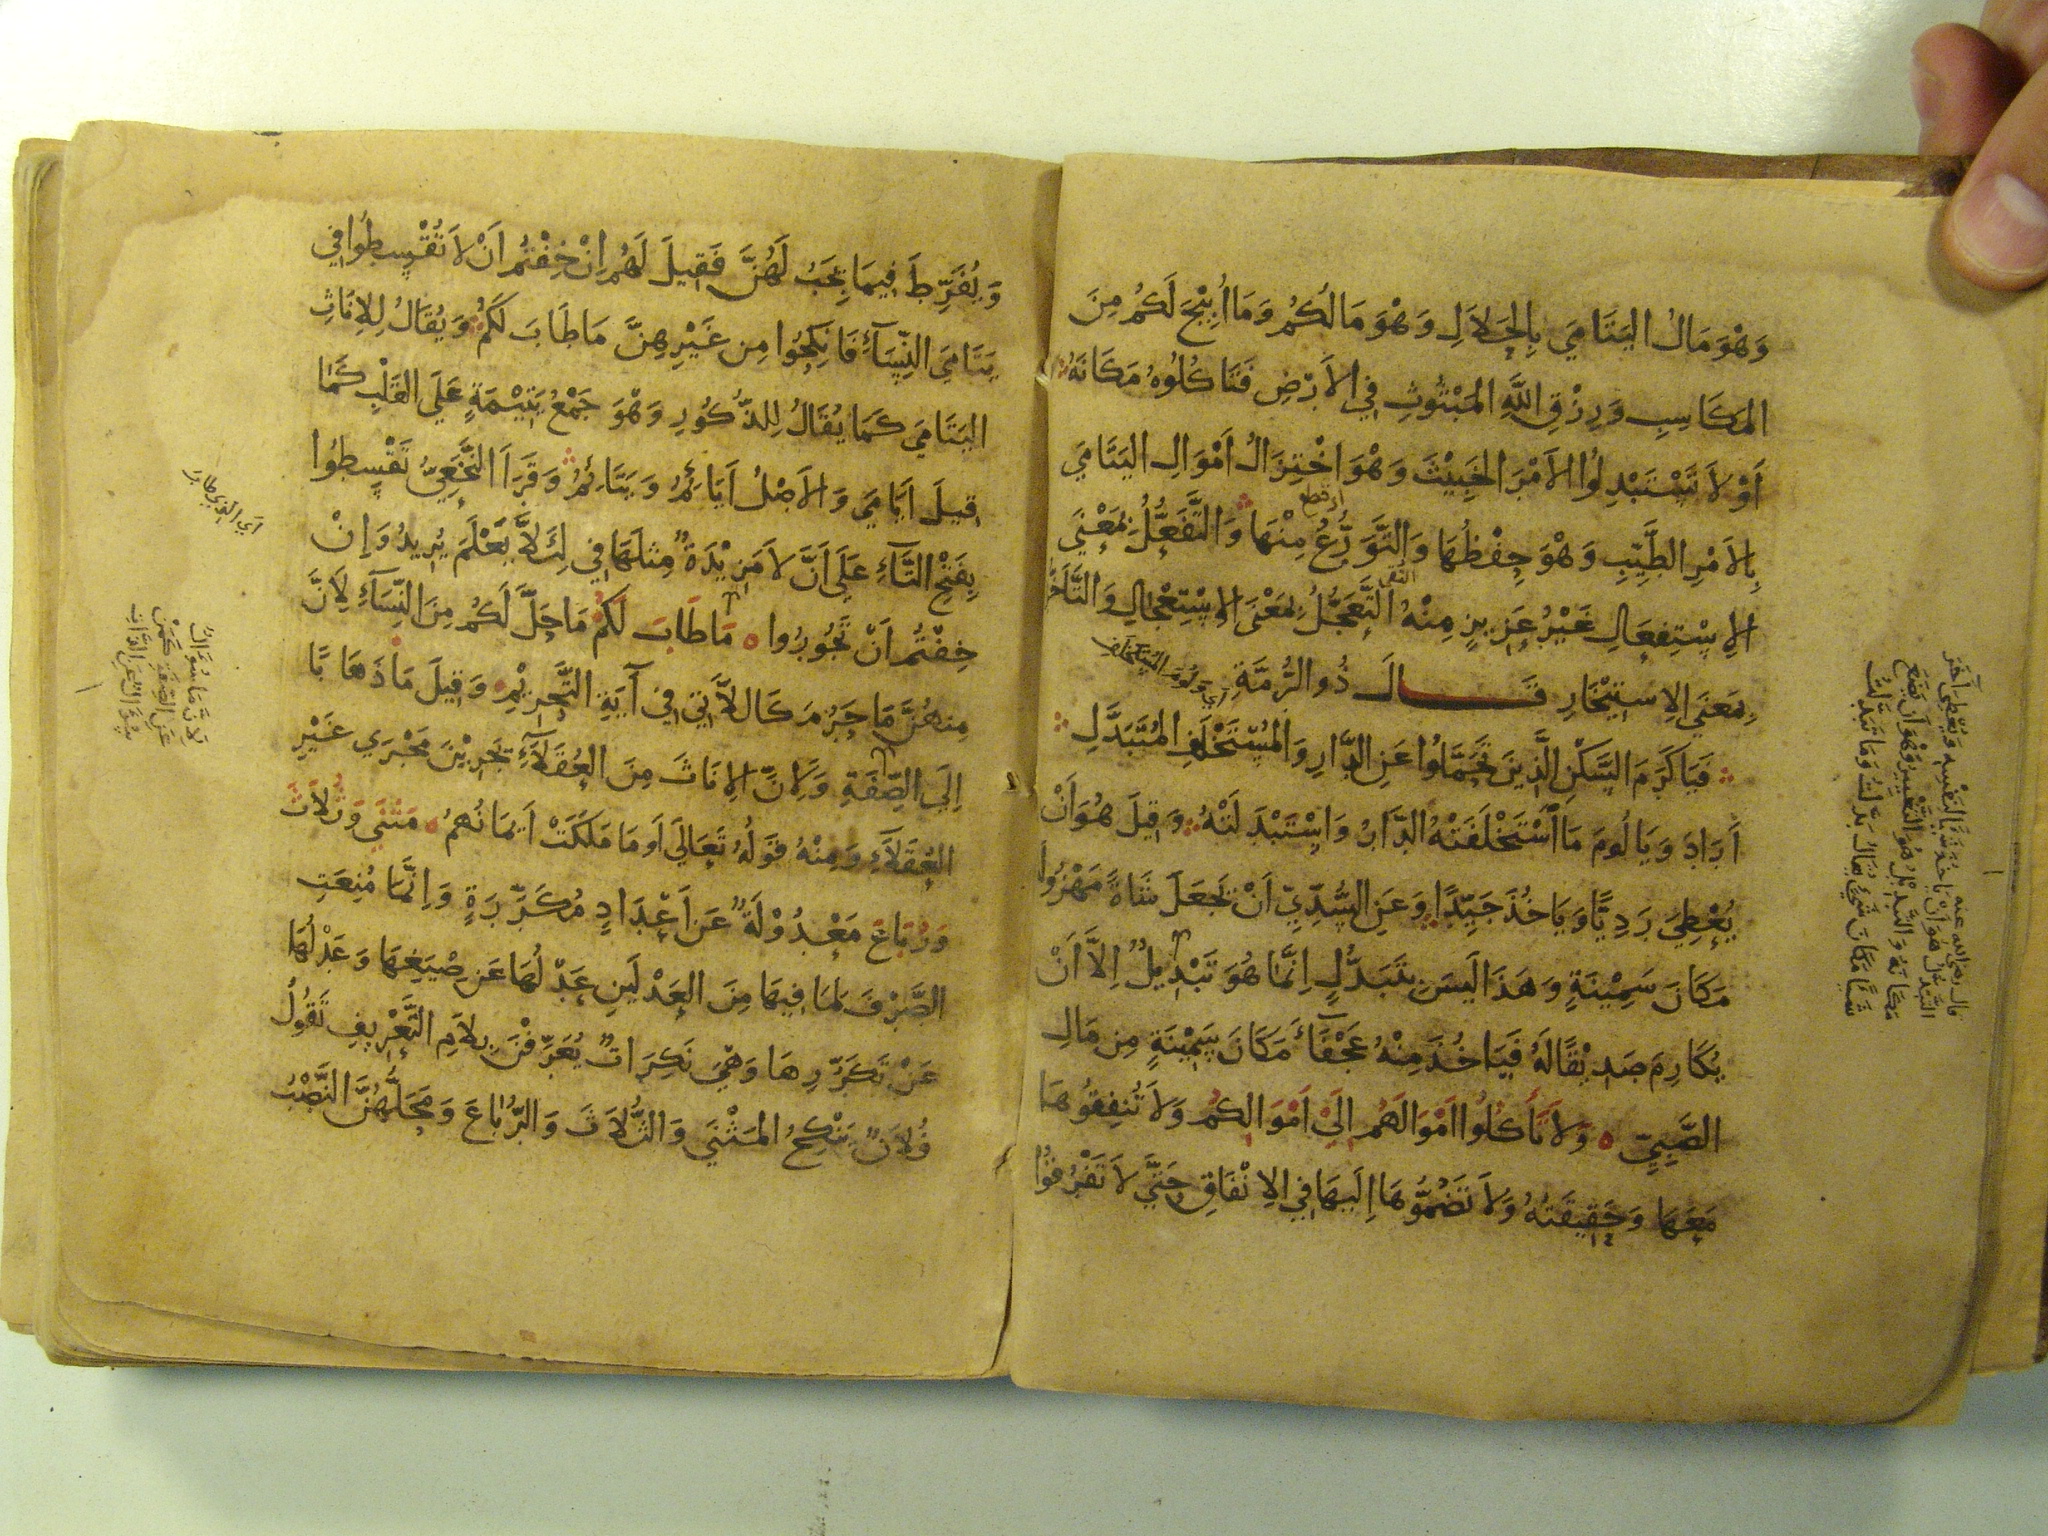 وَهْوَ مَالُ اليَتَامَى بِالحَلَالِ وَهْوَ مَالُكُمْ وَمَا أُبِيْحَ لَكُمْ مِنَ
المَكَاسِبِ وَرِزْقِ اللَّهِ المَبْثُوثِ فِي الأَرْضِ فَتَاكُلُوهُ مَكَانَهُ
أَوْ لاَ تَسْتَبْدِلُوا الأَمْرَ الخَبِيْثَ وَهْوَ اخْتِزَالُ أَمْوَالِ اليَتَامَى
بِالأَمْرِ الطَّيِّبِ وَهْوَ حِفْظُهَا وَالتَّوَرُّعُ مِنْهَا وَالتَّفَعُّلُ بِمَعْنَى
الاِسْتِفعَالِ غَيْرُ عَزِيزٍ مِنْهُ التَّعَجُّلُ بِمَعْنَى الاِسْتِعْجَالِ وَالتَّاَخُّرُ
بِمَعْنَى الاِستِيْخَارِ قَالَ ذُو الرُّمَّةِ
فَيَا كَرَمَ السَّكْنِ الَّذِينَ تَحَمَّلُوا عَنِ الدَّارِ وَالمُسْتَخْلَفِ المُتَبَدَّلِ
أَرَادَ وَيَا لُومَ مَا اسْتَخْلَفَتْهُ الدَّارُ وَاسْتَبْدَلَتْهُ وَقِيلَ هُوَ أَنْ
يُعْطِيَ رَدِيًّا وَيَاخُذَ جَيِّدًا وَعَنِ السُّدِّيِّ أَنْ تَجْعَلَ شَاةً مَهْزُولَةً
مَكَانَ سَمِيْنَةٍ وَهَذَا لَيسَ بِتَبَدُّلٍ اِنَّمَا هُوَ تَبْدِيلٌ اِلاَّ أَنْ
يُكَارِمَ صَدِيْقًا لَهُ فَيَاخُذَ مِنْهُ عَجْفَآءَ مَكَانَ سَمِيْنَةٍ مِن مَالِ
الصَّبِيِّ ه وَلاَ تَأكُلُوا أَمْوَالَهُم اِلَى أَمْوَالِكُم وَلاَ تُنفِقُوهَا
مَعَهَا وَحَقِيقَتُهُ وَلاَ تَضُمُّوهَا اِلَيهَا فِي الاِنْفَاقِ حَتَّى لاَ تَفْرُقُوا
وَيُفَرِّطَ فِيمَا يَجِبُ لَهُنَّ فَقِيلَ لَهُم اِنْ خِفْتُم أَنْ لاَ تُقْسِطُوا فِي
يَتَامَى النِّسَآءِ فَانكِحُوا مِن غَيْرِهِنَّ مَا طَابَ لَكُمْ وَيُقَالُ لِلاِنَاثِ
اليَتَامَى كَمَا يُقَالُ لِلذُّكُورِ وَهْوَ جَمْعُ يَتِيْمَةٍ عَلَى القَلْبِ كَمَا
قِيلَ أَيَامَى وَالأَصْلُ أَيَائِمُ وَيَتَائِمُ وَقَرَأَ النَّخَعِيُّ تَقْسِطُوا
بِفَتْحِ التَّآءِ عَلَى أَنَّ لاَ مَزِيْدَةٌ مِثلَهَا فِي لِئَلاَّ يَعْلَمَ يُرِيدُ وَاِنْ
خِفْتُم أَنْ تَجُورُوا ه مَا طَابَ لَكُمْ مَا حَلَّ لَكُم مِنَ النِّسَآءِ لِأَنَّ
مِنهُنَّ مَا حَرُمَ كَاللاَّتِي فِي آيَةِ التَّحْرِيْمِ وَقِيلَ مَا ذَهَابًا
اِلَى الصِّفَةِ وَلِأَنَّ الاِنَاثَ مِنَ العُقَلآءِ يَجْرِيْنَ مَجْرَى غَيْرِ
العُقَلآءِ وَمِنْهُ قَولُهُ تَعَالَى أَو مَا مَلَكَتْ أَيمَانُهُمْ ه مَثْنَى وَثُلاَثَ
وَرُبَاعَ مَعْدُوْلَةٌ عَن أَعْدَادٍ مُكَرَّرَةٍ وَاِنَّمَا مُنِعَتِ
الصَّرْفَ لِمَا فِيهَا مِنَ العَدْلَينِ عَدْلُهَا عَن صِيَغِهَا وَعَدْلُهَا
عَنْ تَكَرُّرِهَا وَهْيَ نَكِرَاتٌ يُعَرَّفْنَ بِلاَمِ التَّعْرِيفِ تَقُولُ
فُلاَنٌ يَنْكِحُ المَثْنَى وَالثُّلاَثَ وَالرُّبَاعَ وَمَحَلُّهُنَّ النَّصْبُ
لانَّ مَا سُؤَالٌ
عَنِ الصِّفَةِ كَمَنْ
سُؤَالٌ عَنِ الذَّاتِ